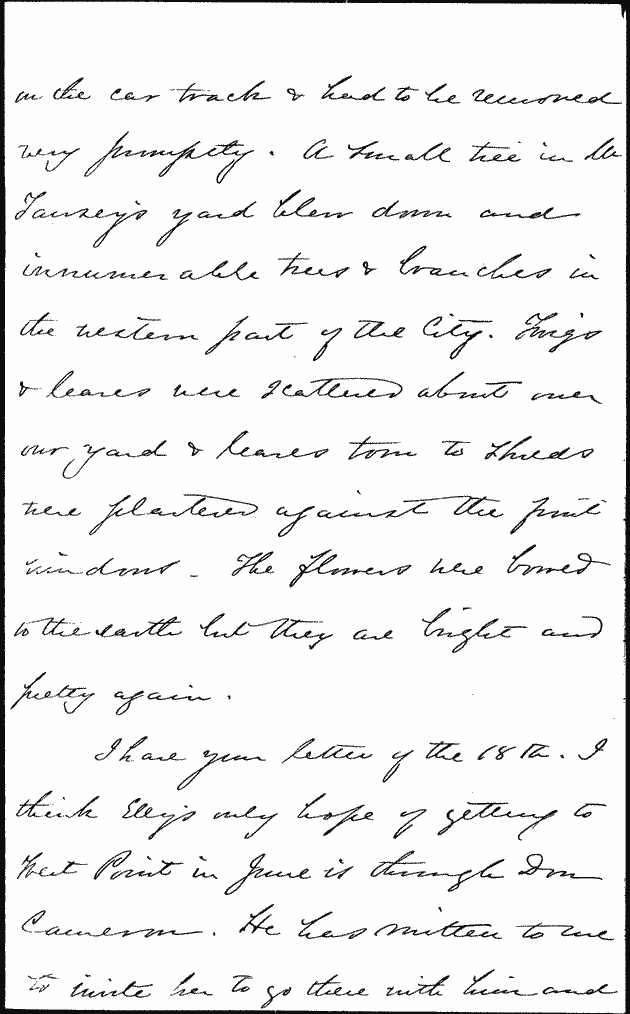 on the car track & had to be removed
very promptly. A small tree in Mr
Tansey's yard blew down and
innumerable trees & branches in
the western part of the City. Twigs
& leaves were scattered about over
our yard & leaves torn to shreds
were plastered against the front
windows. The flowers were bowed
to the earth but they are bright and
pretty again.
I have your letter of the 18th. I
think Elly's only hope of getting to
West Point in June is through Don
Cameron. He has written to me
to invite her to go there with him and